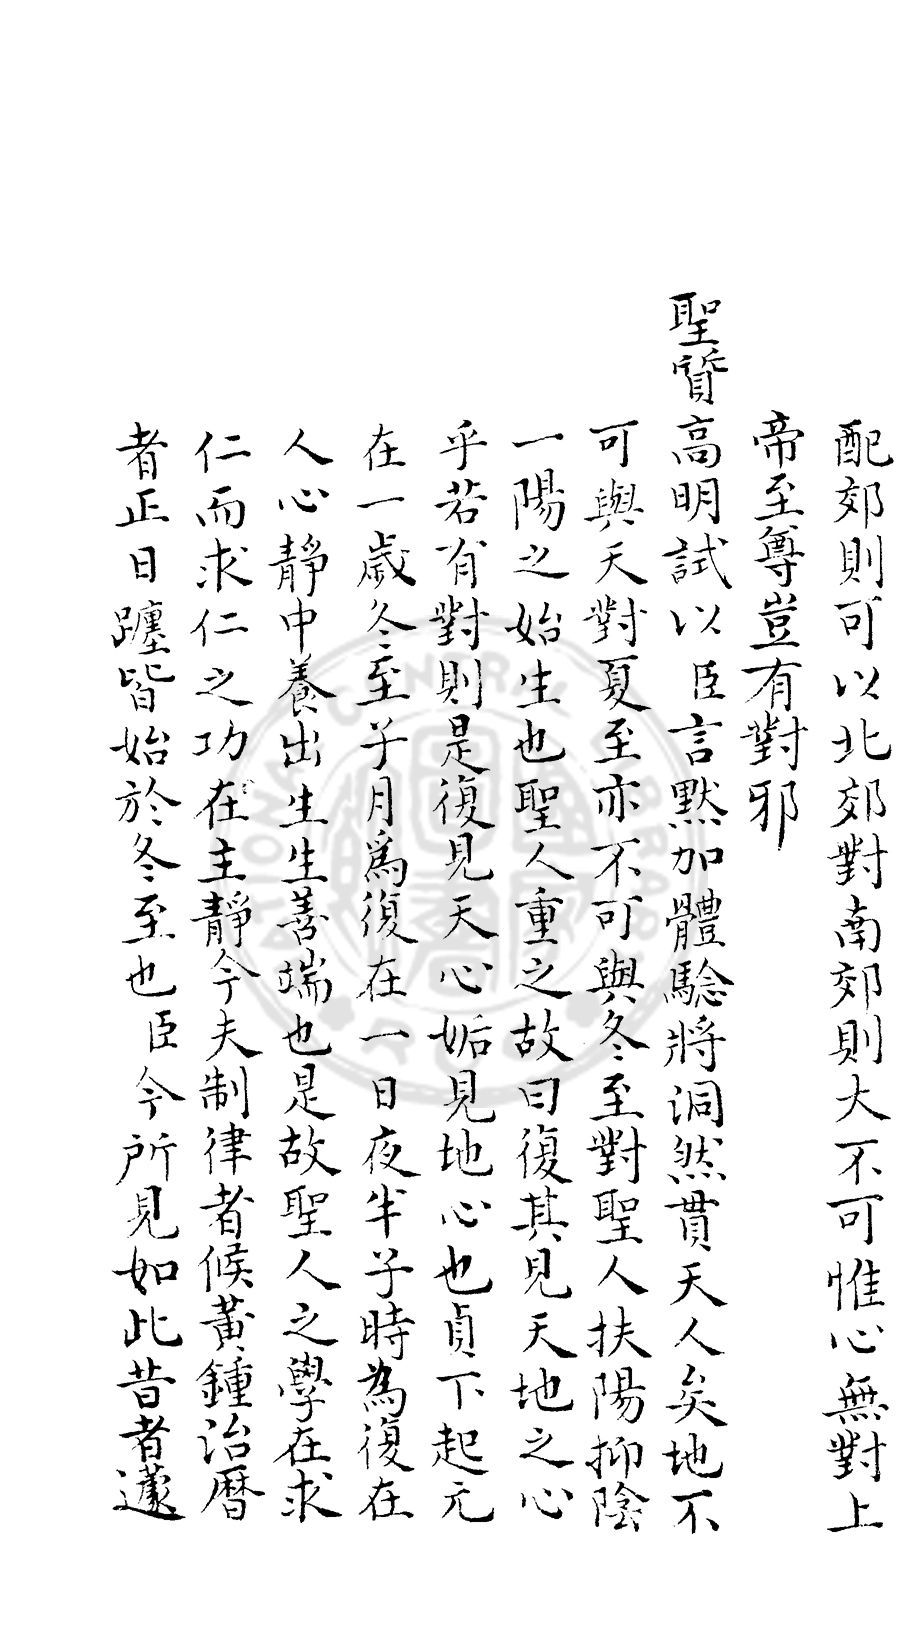 配郊則可以北郊對南郊則大不可惟心無對上
帝至尊豈有對邪
聖質高明試以臣言默加體驗將洞然貫天人矣地不
可與天對夏至亦不可與冬至對聖人扶陽抑陰
一陽之始生也聖人重之故曰復其見天地之心
乎若有對則是復見天心姤見地心也貞下起元
在一歲冬至子月爲復在一日夜半子時為復在
人心靜中養出生生善端也是故聖人之學在求
仁而求仁之功在主靜今夫制律者候黃鍾治曆
者正日躔皆始於冬至也臣今所見如此昔者蘧